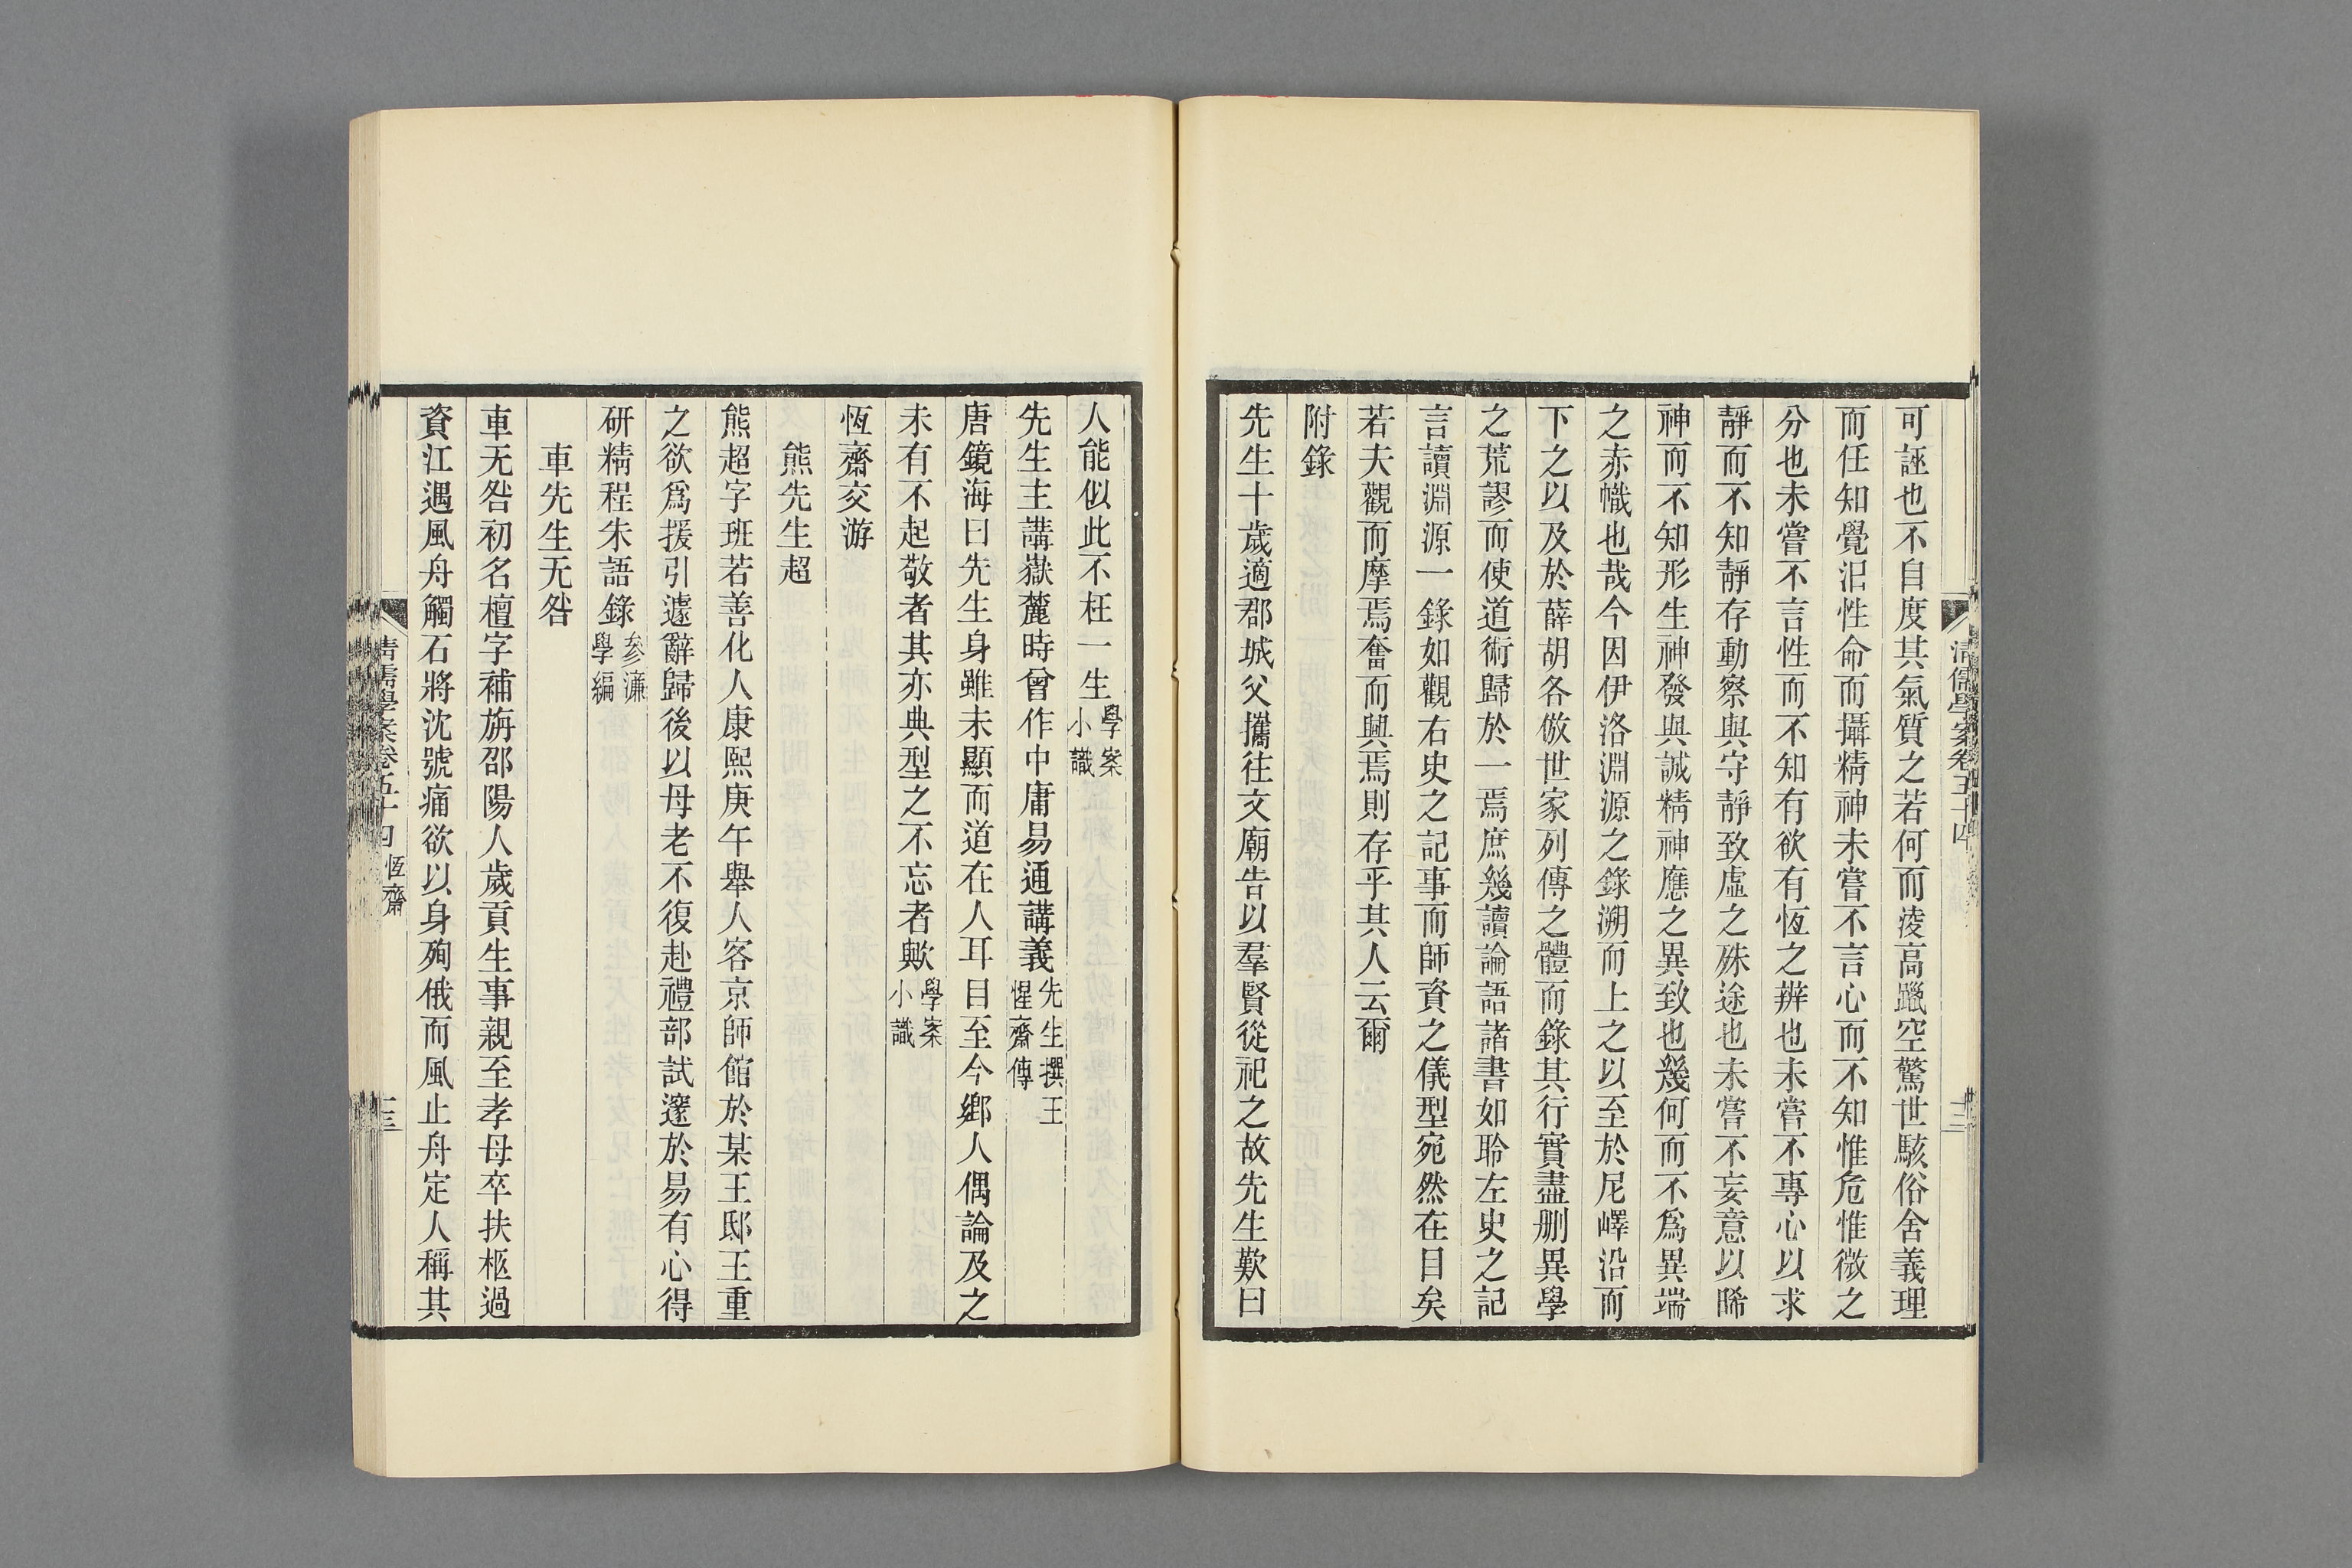 清儒學案卷五十四
可誣也不自度其氣質之若何而淩高躐空驚世駭俗舍義理
而任知覺汨性命而攝精神未嘗不言心而不知惟危惟微之
分也未嘗不言性而不知有欲有恆之辨也未嘗不專心以求
靜而不知靜存動察與守靜致虛之殊途也未嘗不妄意以睎
神而不知形生神發與誠精神應之異致也幾何而不為異端
之赤幟也哉今因伊洛淵源之錄溯而上之以至於尼嶧沿而
下之以及於薛胡各倣世家列傳之體而錄其行實盡刪異學
之荒謬而使道術歸於一焉庶幾讀論語諸書如聆左史之記
言讀淵源一錄如觀右史之記事而師資之儀型宛然在目矣
若夫觀而摩焉奮而興焉則存乎其人云爾
附錄
先生十歲適郡城父攜往文廟告以羣賢從祀之故先生歎曰
人能似此不枉一生學案小識
先生主講嶽麓時曾作中庸易通講義先生撰王惺齋傳
唐鏡海曰先生身雖未顯而道在人耳目至今鄉人偶論及之
未有不起敬者其亦典型之不忘者歟學案小識
恆齋交游
熊先生超
熊超字班若善化人康熙庚午舉人客京師館於某王邸王重
之欲為援引遽辭歸後以母老不復赴禮部試邃於易有心得
研精程朱語錄參濂學編
車先生无咎
車无咎初名檀字補旃邵陽人歲貢生事親至孝母卒扶柩過
資江遇風舟觸石將沈號痛欲以身殉俄而風止舟定人稱其
清儒學案卷五十四 恆齋